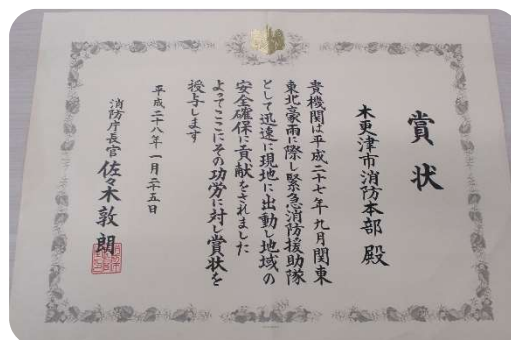 賞状
木更津市消防本部 殿
貴機関は平成二十七年九月関東
東北豪雨に際し緊急消防援助隊
として迅速に現地に出動し地域の
安全確保に貢献をされました
よってここにその功労に対し賞状を
授与します
平成二十八年一月二十五日
消防庁長官 佐々木敦朗